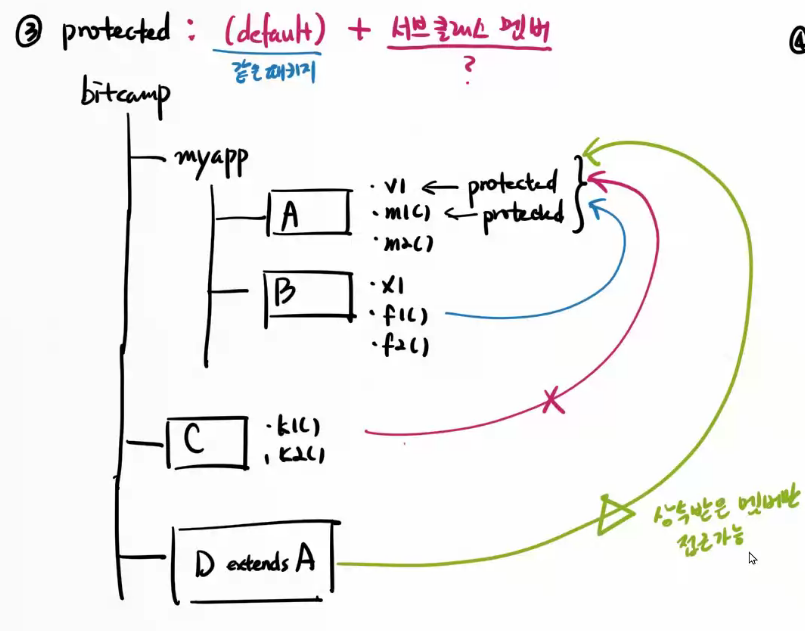 ③ protected : (default) + 서브클래스 멤버
같은 패키지
?
bitcamp
myapp
A
· v1 ← protected
· m1() ← protected
· m2()
B
· x1
· f1()
· f2()
C
· k1()
· k2()
D extends A
상속받은 멤버만
접근가능